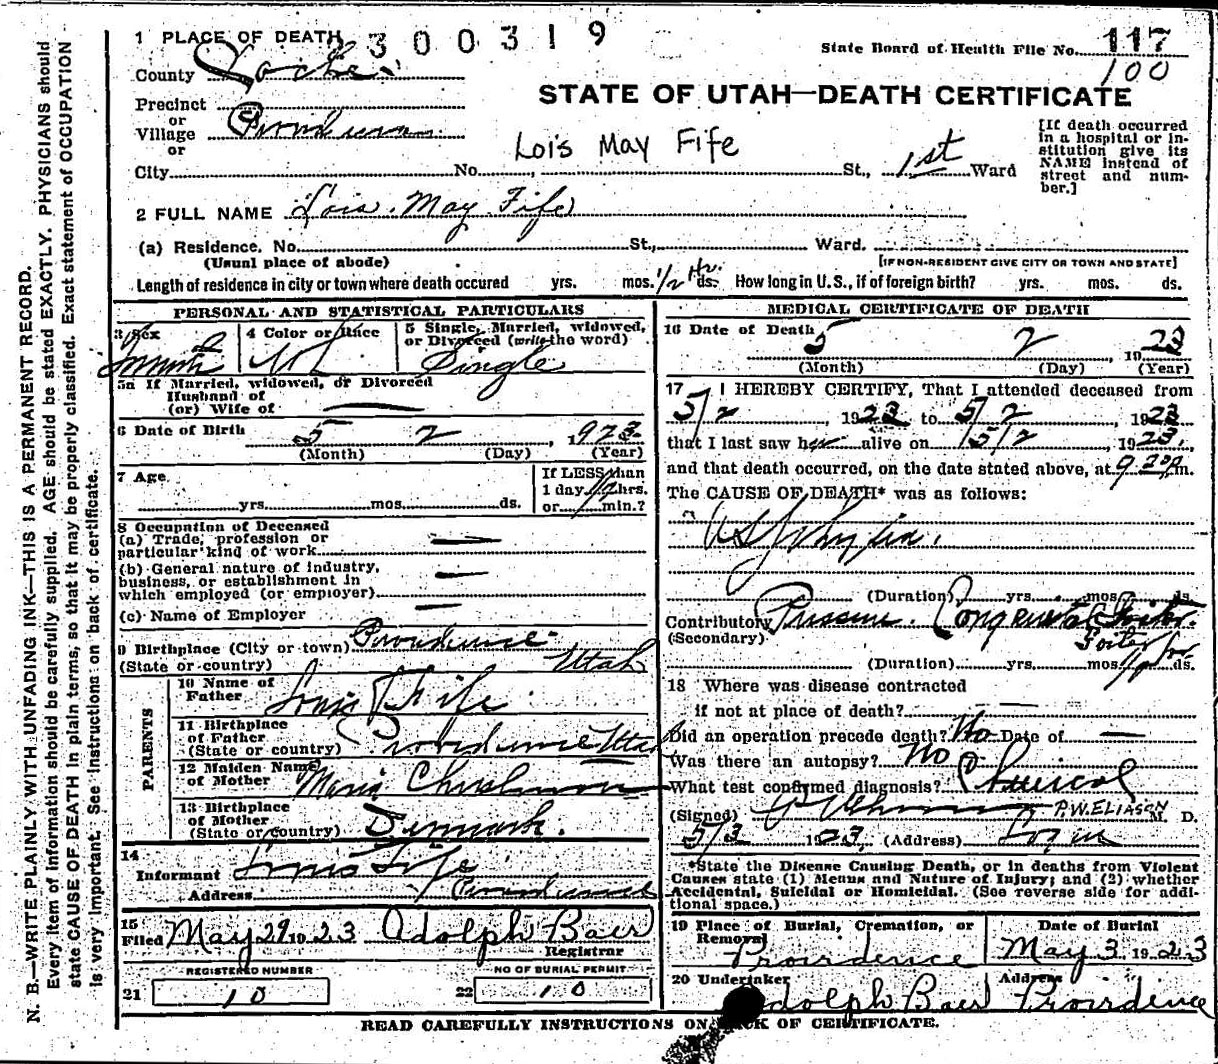 1 PLACE OF DEATH 300319
State Board of Health File No. 117
100
County Cache
STATE OF UTAH—DEATH CERTIFICATE
Precinct
or
Village Providence
or
Lois May Fife
City No. St., 1st Ward
[If death occurred
in a hospital or in-
stitution give its
NAME instead of
street and num-
ber.]
2 FULL NAME Lois May Fife
(a) Residence. No. St., Ward.
(Usual place of abode) [IF NON-RESIDENT GIVE CITY OR TOWN AND STATE]
Length of residence in city or town where death occured yrs. mos. 1/2 Hr. ds. How long in U.S., if of foreign birth? yrs. mos. ds.
PERSONAL AND STATISTICAL PARTICULARS
3 Sex
4 Color or Race
5 Single, Married, widowed,
or Divorced (write the word)
Single
5a If Married, widowed, or Divorced
Husband of
(or) Wife of
6 Date of Birth 5 2, 1923
(Month) (Day) (Year)
7 Age
yrs. mos. ds.
If LESS than
1 day 1/2 hrs.
or min.?
8 Occupation of Deceased
(a) Trade, profession or
particular kind of work
(b) General nature of industry,
business, or establishment in
which employed (or employer)
(c) Name of Employer
9 Birthplace (City or town) Providence
(State or country) Utah
PARENTS
10 Name of
Father Louis Fife
11 Birthplace
of Father
(State or country) Providence Utah
12 Maiden Name
of Mother
13 Birthplace
of Mother
(State or country) Denmark.
14
Informant Louis Fife
Address Providence
15
Filed May 29 1923 Adolph Baer
Registrar
REGISTERED NUMBER
21 10
NO OF BURIAL PERMIT
22 10
MEDICAL CERTIFICATE OF DEATH
16 Date of Death 5 2, 1923
(Month) (Day) (Year)
17 I HEREBY CERTIFY, That I attended deceased from
5/2, 1923 to 5/2, 1923
that I last saw her alive on 5/2 1923,
and that death occurred, on the date stated above, at 9 20 p m.
The CAUSE OF DEATH* was as follows:
(Duration) yrs. mos. ds.
Contributory Pressure. Congenital Goiter.
(Secondary) Goiter
(Duration) yrs. mos. ds.
18 Where was disease contracted
if not at place of death?
Did an operation precede death? No Date of
Was there an autopsy? No
What test confirmed diagnosis?
(Signed) P.W. ELIASON M. D.
5/3 1923, (Address) Logan
*State the Disease Causing Death, or in deaths from Violent
Causes state (1) Means and Nature of Injury; and (2) whether
Accidental, Suicidal or Homicidal. (See reverse side for addi-
tional space.)
19 Place of Burial, Cremation, or
Removal
Providence
Date of Burial
May 3 1923
20 Undertaker Address
Adolph Baer Providence
READ CAREFULLY INSTRUCTIONS ON BACK OF CERTIFICATE.
N. B.—WRITE PLAINLY WITH UNFADING INK—THIS IS A PERMANENT RECORD.
Every item of information should be carefully supplied. AGE should be stated EXACTLY. PHYSICIANS should
state CAUSE OF DEATH in plain terms, so that it may be properly classified. Exact statement of OCCUPATION
is very important. See Instructions on back of certificate.